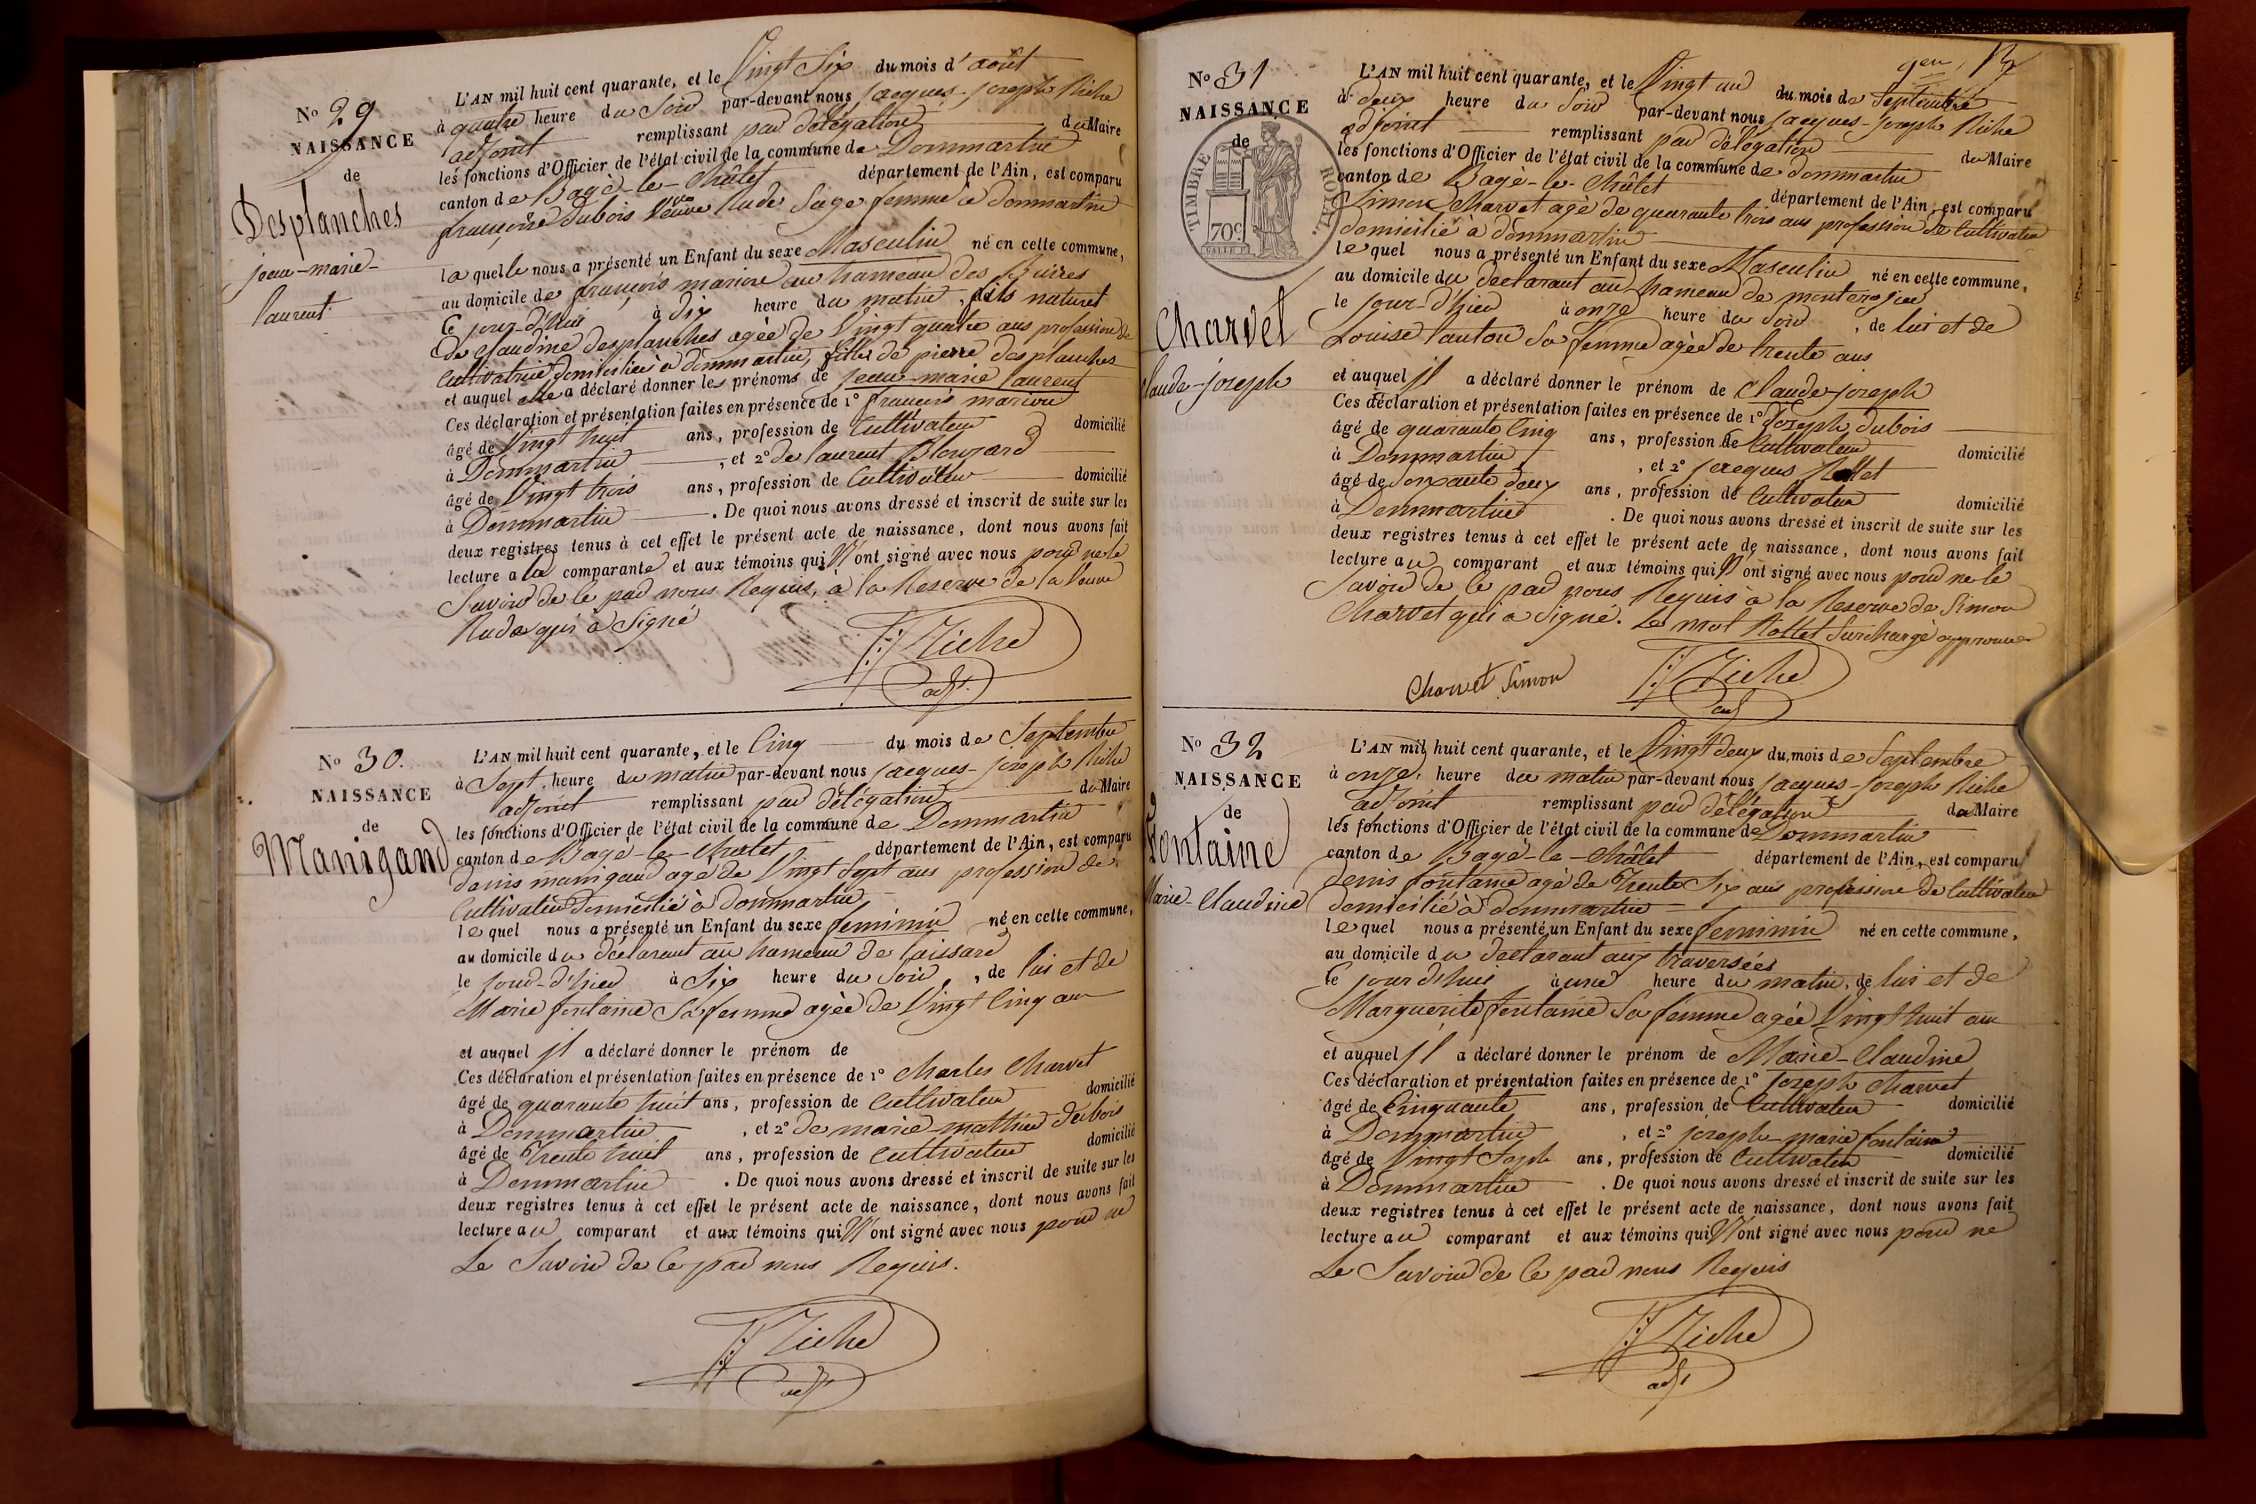 No 29
NAISSANCE
de
Desplanches
jean-marie-
laurent
L'AN mil huit cent quarante, et le Vingt Six du mois d'août
à quatre heure du Soir par-devant nous jacques-joseph Riche
adjoint remplissant par délégation du Maire
les fonctions d'Officier de l'état civil de la commune de Dommartin
canton de Bagé-le-Châtel département de l'Ain, est comparu
françoise dubois Veuve Rude Sage femme à dommartin
laquelle nous a présenté un Enfant du sexe Masculin né en cette commune,
au domicile de françois marion au hameau des
Ce jour-d'hui à dix heure du matin, fils naturel
de Claudine desplanches agée de Vingt quatre ans profession de
Cultivatrice domiciliée à dommartin, fille de pierre desplanches
et auquel elle a déclaré donner les prénoms de jean-marie laurent
Ces déclaration et présentation faites en présence de 1° françois marion
âgé de Vingt huit ans, profession de Cultivateur domicilié
à Dommartin, et 2° de laurent Blouzard
âgé de Vingt trois ans, profession de Cultivateur domicilié
à Dommartin. De quoi nous avons dressé et inscrit de suite sur les
deux registres tenus à cet effet le présent acte de naissance, dont nous avons fait
lecture a la comparante et aux témoins qui N'ont signé avec nous pour ne le
Savoir de ce par nous Requis, à la Reserve de la Veuve
Rude qui à Signé
JJ Riche
adj.
No 30.
NAISSANCE
de
Manigand
L'AN mil huit cent quarante, et le Cinq du mois de Septembre
à Sept heure du matin par-devant nous jacques-joseph Riche
adjoint remplissant par délégation du Maire
les fonctions d'Officier de l'état civil de la commune de Dommartin
canton de Bagé-le-Chatel département de l'Ain, est comparu
denis manigand agé de Vingt Sept ans profession de
Cultivateur domicilié à dommartin
lequel nous a présenté un Enfant du sexe feminin né en cette commune,
au domicile du déclarant au hameau de laissard
le jour-d'hier à Six heure du Soir, de lui et de
Marie fontaine Sa femme agée de Vingt Cinq an
et auquel Il a déclaré donner le prénom de
Ces déclaration et présentation faites en présence de 1° Charles Charvet
âgé de quarante huit ans, profession de Cultivateur domicilié
à Dommartin, et 2° de marie-mathieu dubois
âgé de Trente huit ans, profession de Cultivateur domicilié
à Dommartin. De quoi nous avons dressé et inscrit de suite sur les
deux registres tenus à cet effet le présent acte de naissance, dont nous avons fait
lecture au comparant et aux témoins qui N'ont signé avec nous pour ne
Le Savoir de Ce par nous Requis.
JJ Riche
adj
No 31
NAISSANCE
de
TIMBRE ROYAL.
70c
Charvet
Claude-joseph
L'AN mil huit cent quarante, et le Vingt un du mois de Septembre
à deux heure du Soir par-devant nous jacques-joseph Riche
adjoint remplissant par délégation du Maire
les fonctions d'Officier de l'état civil de la commune de dommartin
canton de Bagé-le-Châtel département de l'Ain, est comparu
Simon Charvet agé de quarante trois ans profession de Cultivateur
domicilié à dommartin
lequel nous a présenté un Enfant du sexe Masculin né en cette commune,
au domicile du declarant au hameau de
le jour-d'hier à onze heure du Soir, de lui et de
Louise tanton Sa femme agée de trente ans
et auquel Il a déclaré donner le prénom de Claude-joseph
Ces déclaration et présentation faites en présence de 1° joseph dubois
âgé de quarante Cinq ans, profession de Cultivateur domicilié
à Dommartin, et 2° jacques Rollet
âgé de Soixante deux ans, profession de Cultivateur domicilié
à Dommartin. De quoi nous avons dressé et inscrit de suite sur les
deux registres tenus à cet effet le présent acte de naissance, dont nous avons fait
lecture au comparant et aux témoins qui N'ont signé avec nous pour ne le
Savoir de ce par nous Requis à la Reserve de Simon
Charvet qui a Signé. Le mot Rollet Surchargé approuvé
Charvet Simon
JJ Riche
adj
No 32
NAISSANCE
de
Fontaine
Marie-Claudine
L'AN mil huit cent quarante, et le Vingt deux du mois de Septembre
à onze heure du matin par-devant nous jacques-joseph Riche
adjoint remplissant par délégation du Maire
les fonctions d'Officier de l'état civil de la commune de Dommartin
canton de Bagé-le-Châtel département de l'Ain, est comparu
denis fontaine agé de Trente Six ans profession de Cultivateur
domicilié à dommartin
lequel nous a présenté un Enfant du sexe feminin né en cette commune,
au domicile du declarant aux traversées
Ce jour d'hui à une heure du matin, de lui et de
Marguerite fontaine Sa femme agée Vingt huit an
et auquel Il a déclaré donner le prénom de Marie-Claudine
Ces déclaration et présentation faites en présence de 1° joseph Charvet
âgé de Cinquante ans, profession de Cultivateur domicilié
à Dommartin, et 2° joseph-marie fontaine
âgé de Vingt Seph ans, profession de Cultivateur domicilié
à Dommartin. De quoi nous avons dressé et inscrit de suite sur les
deux registres tenus à cet effet le présent acte de naissance, dont nous avons fait
lecture au comparant et aux témoins qui N'ont signé avec nous pour ne
Le Savoir de Ce par nous Requis
JJ Riche
adj